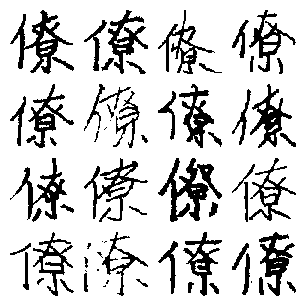 僚僚僚僚
僚僚僚僚
僚僚僚僚
僚僚僚僚